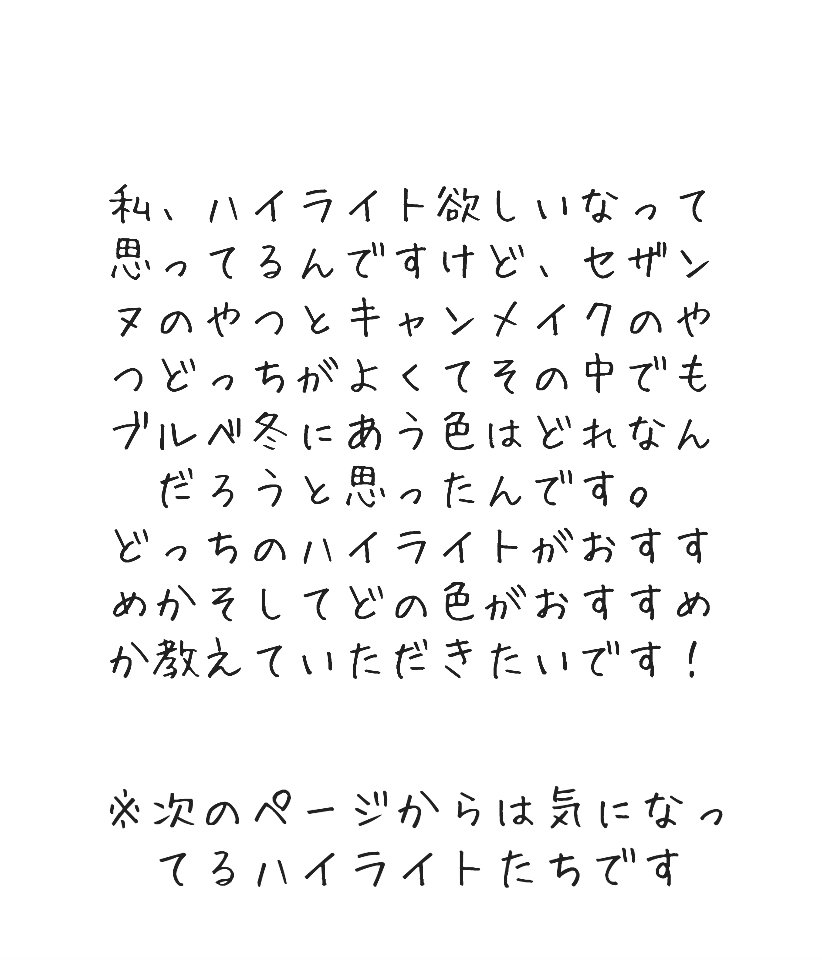 私、ハイライト欲しいなって
思ってるんですけど、セザン
ヌのやつとキャンメイクのや
つどっちがよくてその中でも
ブルベ冬にあう色はどれなん
だろうと思ったんです。
どっちのハイライトがおすす
めかそしてどの色がおすすめ
か教えていただきたいです！
※次のページからは気になっ
てるハイライトたちです